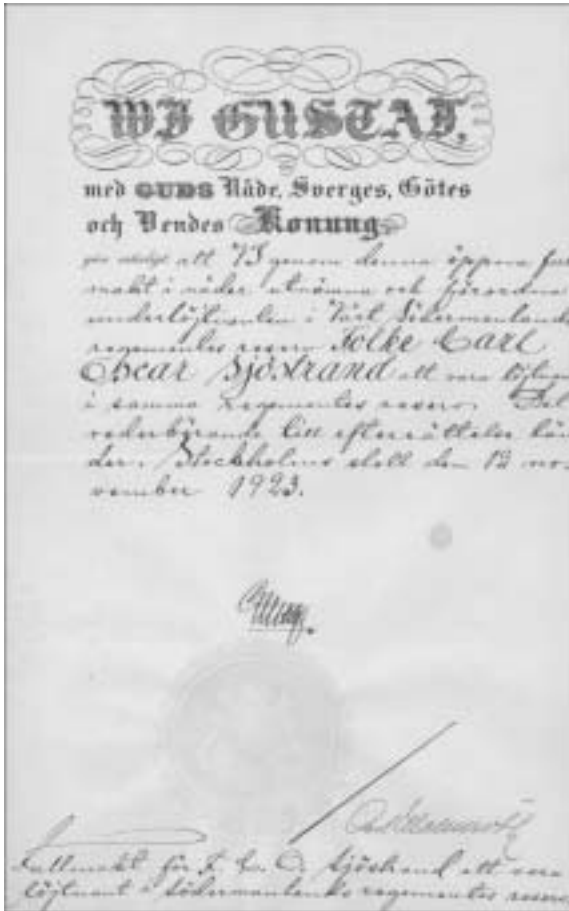 WJ GUSTAF,
med GUDS Nåde, Sverges, Götes
och Vendes Konung
att VJ genom denna öppna ful
makt i nåder utnämna och förordna
underlöjtnanten i Vårt Södermanlands
regementes reserv Folke Carl
Oscar Sjöstrand att vara löjtnan
i samma regementes reserv. Det
vederbörande till efterrättelse län
der. Stockholms slott den 12 no-
vember 1923.
Fullmakt för F. C. O. Sjöstrand att vara
löjtnant i Södermanlands regementes reserv